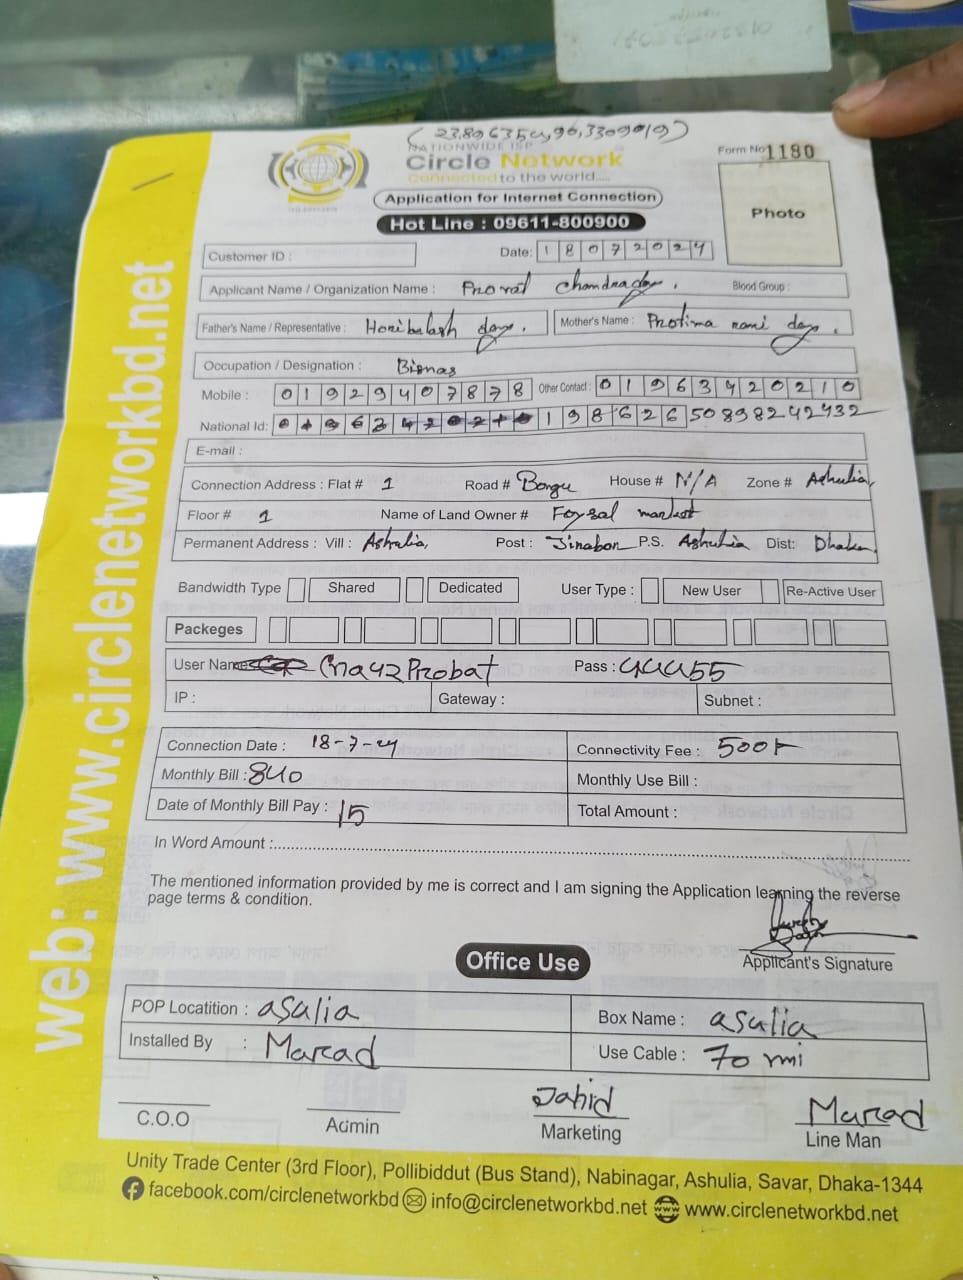 (23.8963541,90.3309019)
NATIONWIDE ISP
Circle Network
Connected to the world....
Form No 1180
Application for Internet Connection
Hot Line : 09611-800900
Photo
Customer ID :
Date: 18072024
Applicant Name / Organization Name : Proval Chandra day. Blood Group :
Father's Name / Representative : Horibalash day. Mother's Name : Protima rani day.
Occupation / Designation :
Mobile : 01929407878 Other Contact : 01963420210
National Id: 19862650898242432
E-mail :
Connection Address : Flat # 1 Road # House # N/A Zone # Ashulia,
Floor # 1 Name of Land Owner # Foysal market
Permanent Address : Vill : Ashulia, Post : Jinabon P.S. Ashulia Dist: Dhaka.
Bandwidth Type Shared Dedicated User Type : New User Re-Active User
Packeges
User Name Cna42Probat Pass : 44455
IP : Gateway : Subnet :
Connection Date : 18-7-24 Connectivity Fee : 500
Monthly Bill : 840 Monthly Use Bill :
Date of Monthly Bill Pay : 15 Total Amount :
In Word Amount :
The mentioned information provided by me is correct and I am signing the Application learning the reverse
page terms & condition.
Applicant's Signature
Office Use
POP Locatition : asulia Box Name : asulia
Installed By : Marcad Use Cable : 70 mi
C.O.O Admin Jahid Marketing Marcad Line Man
Unity Trade Center (3rd Floor), Pollibiddut (Bus Stand), Nabinagar, Ashulia, Savar, Dhaka-1344
facebook.com/circlenetworkbd info@circlenetworkbd.net www.circlenetworkbd.net
web: www.circlenetworkbd.net